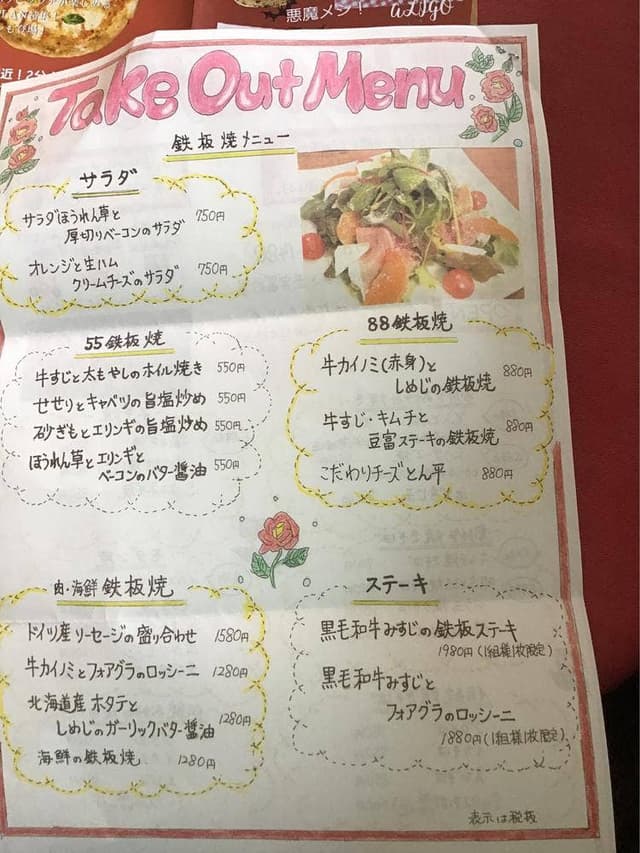 悪魔メシ! aLIGO
近!2分
Take Out Menu
鉄板焼メニュー
サラダ
サラダほうれん草と
厚切りベーコンのサラダ 750円
オレンジと生ハム
クリームチーズのサラダ 750円
55鉄板焼
牛すじと太もやしのホイル焼き 550円
せせりとキャベツの旨塩炒め 550円
砂ぎもとエリンギの旨塩炒め 550円
ほうれん草とエリンギと
ベーコンのバター醤油 550円
88鉄板焼
牛カイノミ(赤身)と
しめじの鉄板焼 880円
牛すじ・キムチと
豆富ステーキの鉄板焼 880円
こだわりチーズとん平 880円
肉・海鮮 鉄板焼
ドイツ産ソーセージの盛り合わせ 1580円
牛カイノミとフォアグラのロッシーニ 1280円
北海道産ホタテと
しめじのガーリックバター醤油 1280円
海鮮の鉄板焼 1280円
ステーキ
黒毛和牛みすじの鉄板ステーキ
1980円(1組様1枚限定)
黒毛和牛みすじと
フォアグラのロッシーニ
1880円(1組様1枚限定)
表示は税抜